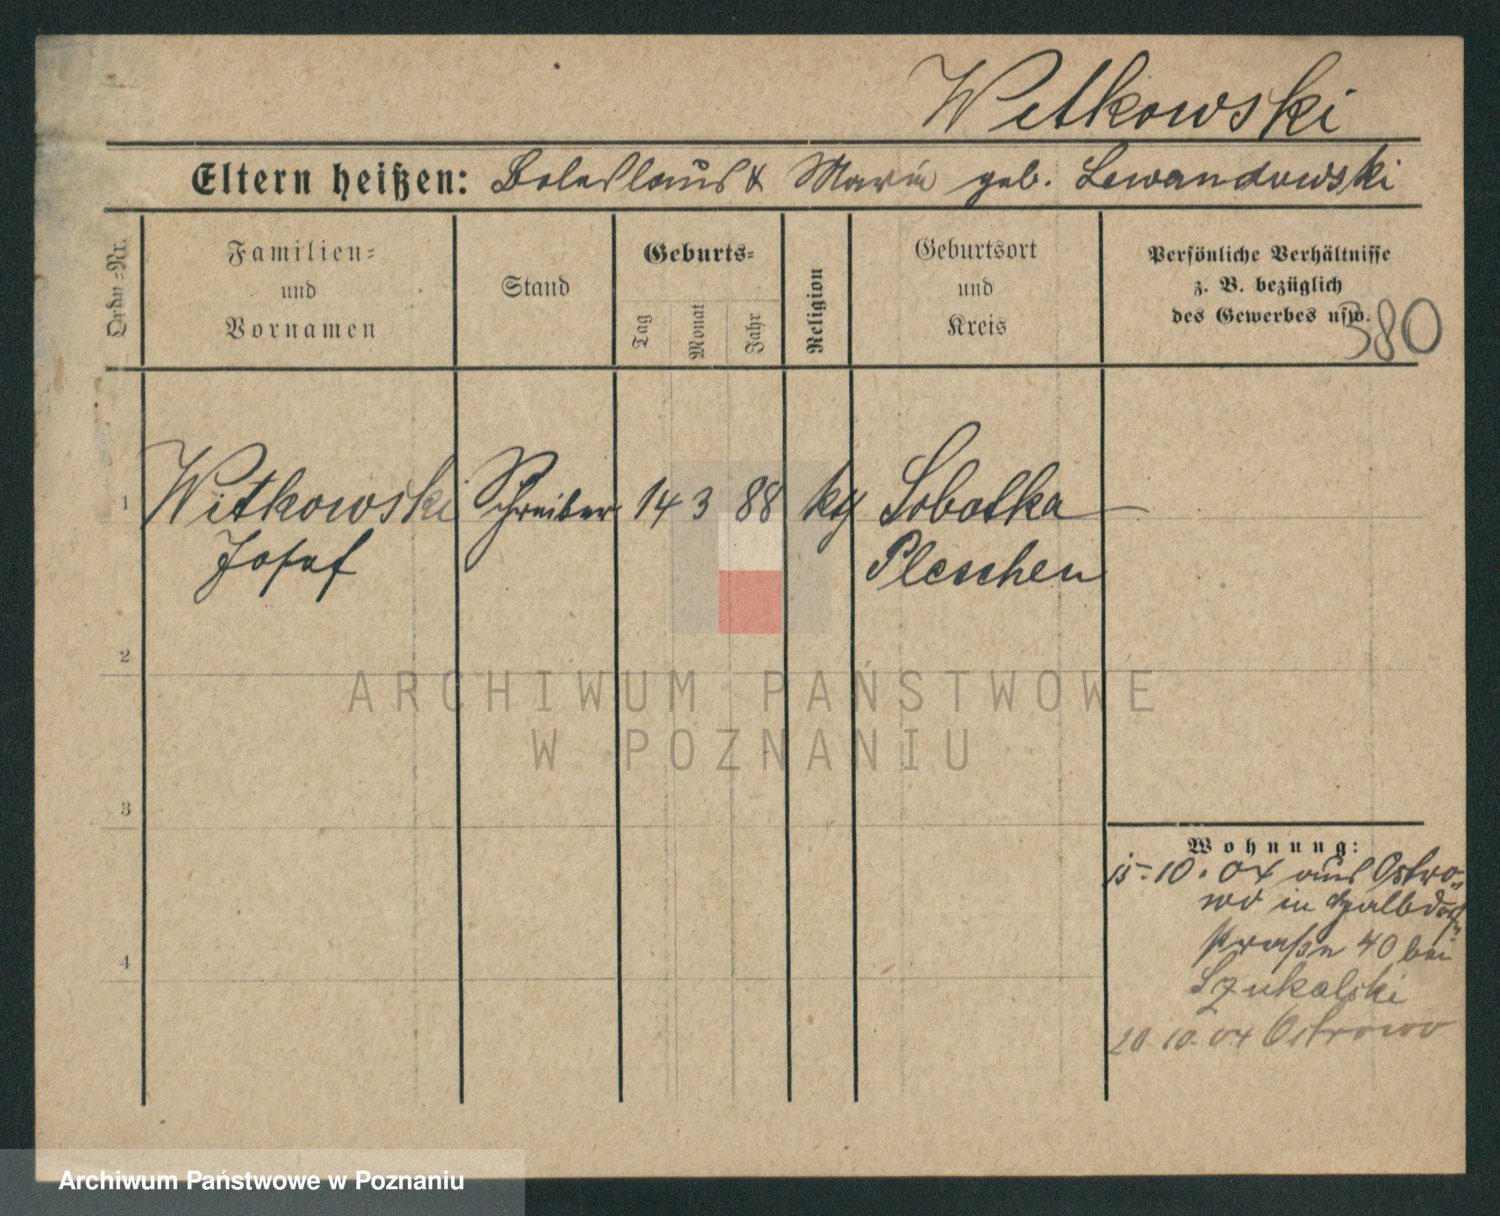 Witkowski
Eltern heißen: Boleslaus & Maria geb. Lewandowski
Ordn.-Nr.
Familien-
und
Vornamen
Stand
Geburts-
Tag
Monat
Jahr
Religion
Geburtsort
und
Kreis
Persönliche Verhältnisse
z. B. bezüglich
des Gewerbes usw.
380
1 Witkowski Schreiber 14 3 88 kth Sobotka
Josef Pleschen
2
3
4
ARCHIWUM PAŃSTWOWE
W POZNANIU
Wohnung:
15-10.04 aus Ostro-
wo in Halbdorf
straße 40 bei
Szukalski
20.10.04 Ostrowo
Archiwum Państwowe w Poznaniu